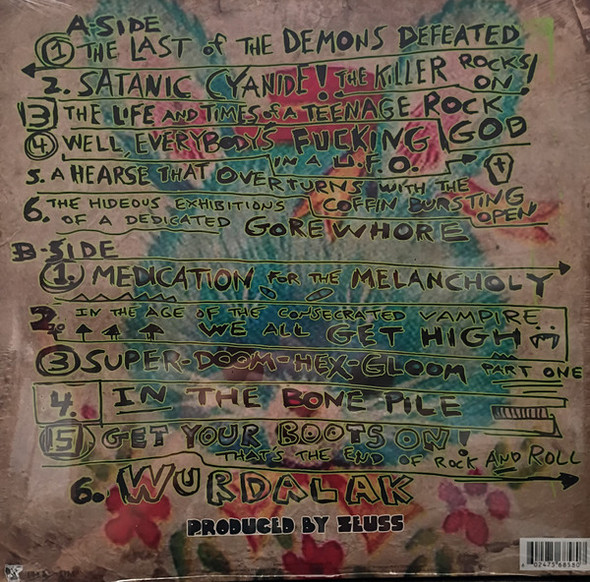 A-SIDE
1 THE LAST of THE DEMONS DEFEATED
2. SATANIC CYANIDE! THE KILLER ROCKS ON!
3 THE LIFE AND TIMES of A TEENAGE ROCK GOD
4 WELL, EVERYBODY'S FUCKING
IN A U.F.O.
5. A HEARSE THAT OVERTURNS WITH THE COFFIN BURSTING OPEN
6. THE HIDEOUS EXHIBITIONS
OF A DEDICATED GORE WHORE
B-SIDE
1. MEDICATION FOR THE MELANCHOLY
2. IN THE AGE OF THE CONSECRATED VAMPIRE
WE ALL GET HIGH
3 SUPER-DOOM-HEX-GLOOM PART ONE
4. IN THE BONE PILE
5 GET YOUR BOOTS ON!
THATS THE END OF ROCK AND ROLL
6. WURDALAK
PRODUCED BY ZEUSS